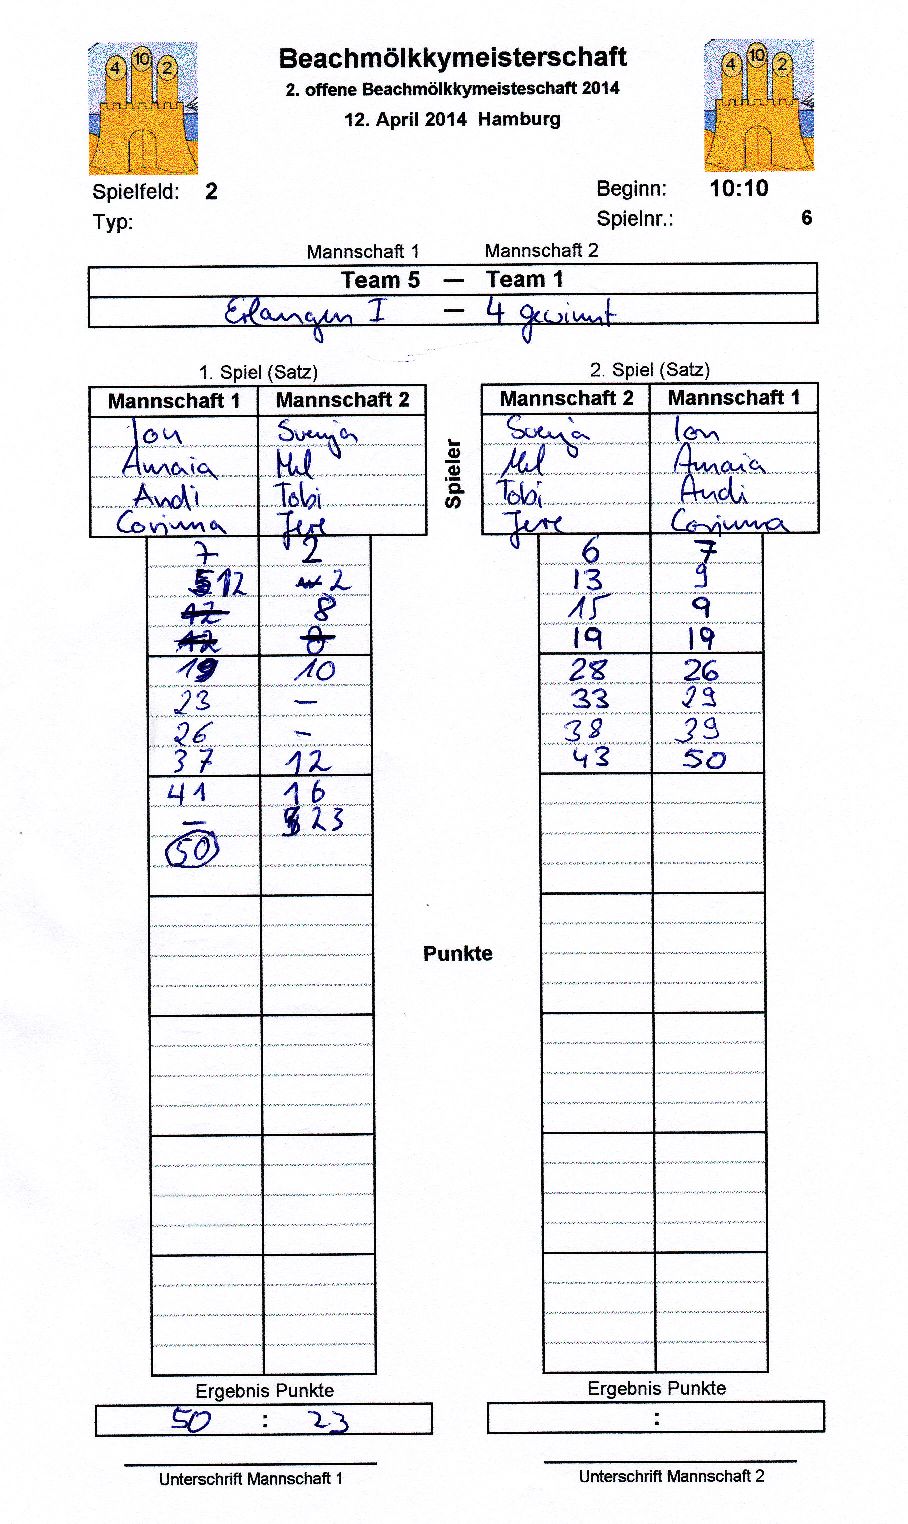 4 10 2
4 10 2
Beachmölkkymeisterschaft
2. offene Beachmölkkymeisteschaft 2014
12. April 2014 Hamburg
Spielfeld: 2
Beginn: 10:10
Typ:
Spielnr.: 6
Mannschaft 1 Mannschaft 2
Team 5 — Team 1
Erlangen I — 4 gewinnt
1. Spiel (Satz)
Mannschaft 1 Mannschaft 2
Jon Svenja
Amaia Mel
Andi Tobi
Corinna Jere
7 2
12 2
12 8
12 8
19 10
23 –
26 –
37 12
41 16
– 23
50
Ergebnis Punkte
50 : 23
Unterschrift Mannschaft 1
Spieler
Punkte
2. Spiel (Satz)
Mannschaft 2 Mannschaft 1
Svenja Jon
Mel Amaia
Tobi Andi
Jere Corinna
6 7
13 9
15 9
19 19
28 26
33 29
38 39
43 50
Ergebnis Punkte
:
Unterschrift Mannschaft 2